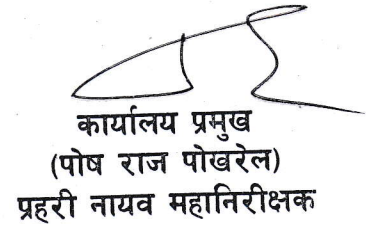 कार्यालय प्रमुख
(पोष राज पोखरेल)
प्रहरी नायव महानिरीक्षक